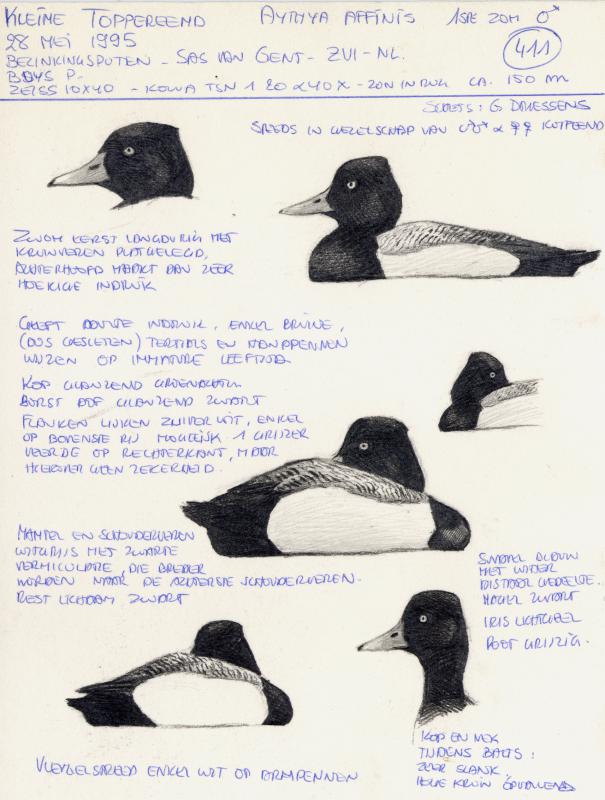 KLEINE TOPPEREEND AYTHYA AFFINIS 1STE ZOM ♂
28 MEI 1995
411
BEZINKINGSPUTEN - SAS VAN GENT - ZVL - NL.
BUYS P.
ZEISS 10X40 - KOWA TSN 1 20 & 40X - ZON IN RUG CA. 150 m
SCHETS: G DRIESSENS
STEEDS IN GEZELSCHAP VAN ♂♂ & ♀♀ KUIFEEND
ZWOM EERST LANGDURIG MET
KRUINVEREN PLATGELEGD,
ACHTERHOOFD MAAKT DAN ZEER
HOEKIGE INDRUK
GEEFT ADULTE INDRUK, ENKEL BRUINE,
(DUS GESLETEN) TERTIALS EN HANDPENNEN
WIJZEN OP IMMATURE LEEFTIJD
KOP GLANZEND GROENACHTIG
BORST DOF GLANZEND ZWART
FLANKEN LIJKEN ZUIVER WIT, ENKEL
OP BOVENSTE RIJ MOGELIJK 1 GRIJZER
VEERDE OP RECHTERKANT, MAAR
HIEROVER GEEN ZEKERHEID.
MANTEL EN SCHOUDERVEREN
WITGRIJS MET ZWARTE
VERMICULATIE, DIE BREDER
WORDEN NAAR DE ACHTERSTE SCHOUDERVEREN.
REST LICHAAM ZWART
SNAVEL BLAUW
MET WITTER
DISTAAL GEDEELTE.
NAGEL ZWART
IRIS LICHTGEEL
POOT GRIJZIG.
KOP EN NEK
TIJDENS BALTS:
ZEER SLANK,
HOGE KRUIN OPVALLEND
VLEUGELSTREEP ENKEL WIT OP ARMPENNEN